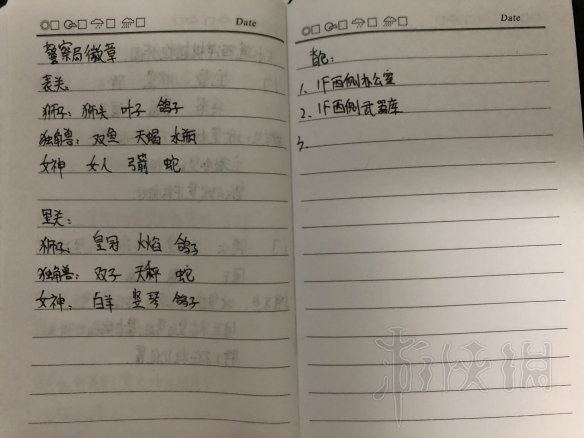 Date
警察局徽章
表关
狮子: 狮头 叶子 鸽子
独角兽: 双鱼 天蝎 水瓶
女神 女人 弓箭 蛇
里关:
狮子: 皇冠 火焰 鸽子
独角兽: 双子 天秤 蛇
女神: 白羊 竖琴 鸽子
Date
背包:
1. 1F西侧办公室
2. 1F西侧武器库
3.
游侠网